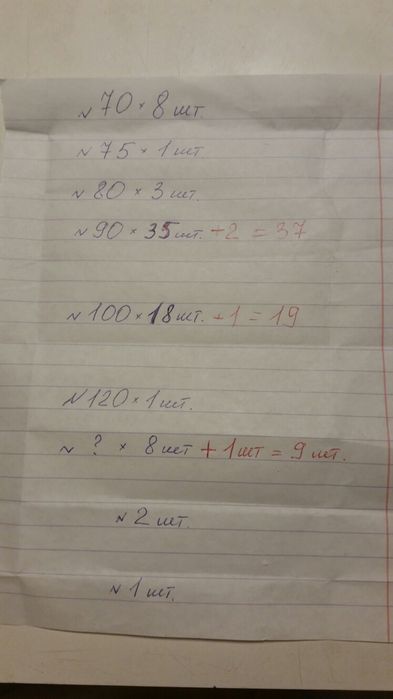 N 70 × 8 шт.
N 75 × 1 шт
N 80 × 3 шт.
N 90 × 35 шт. + 2 = 37
N 100 × 18 шт. + 1 = 19
N 120 × 1 шт.
N ? × 8 шт + 1 шт = 9 шт.
N 2 шт.
N 1 шт.